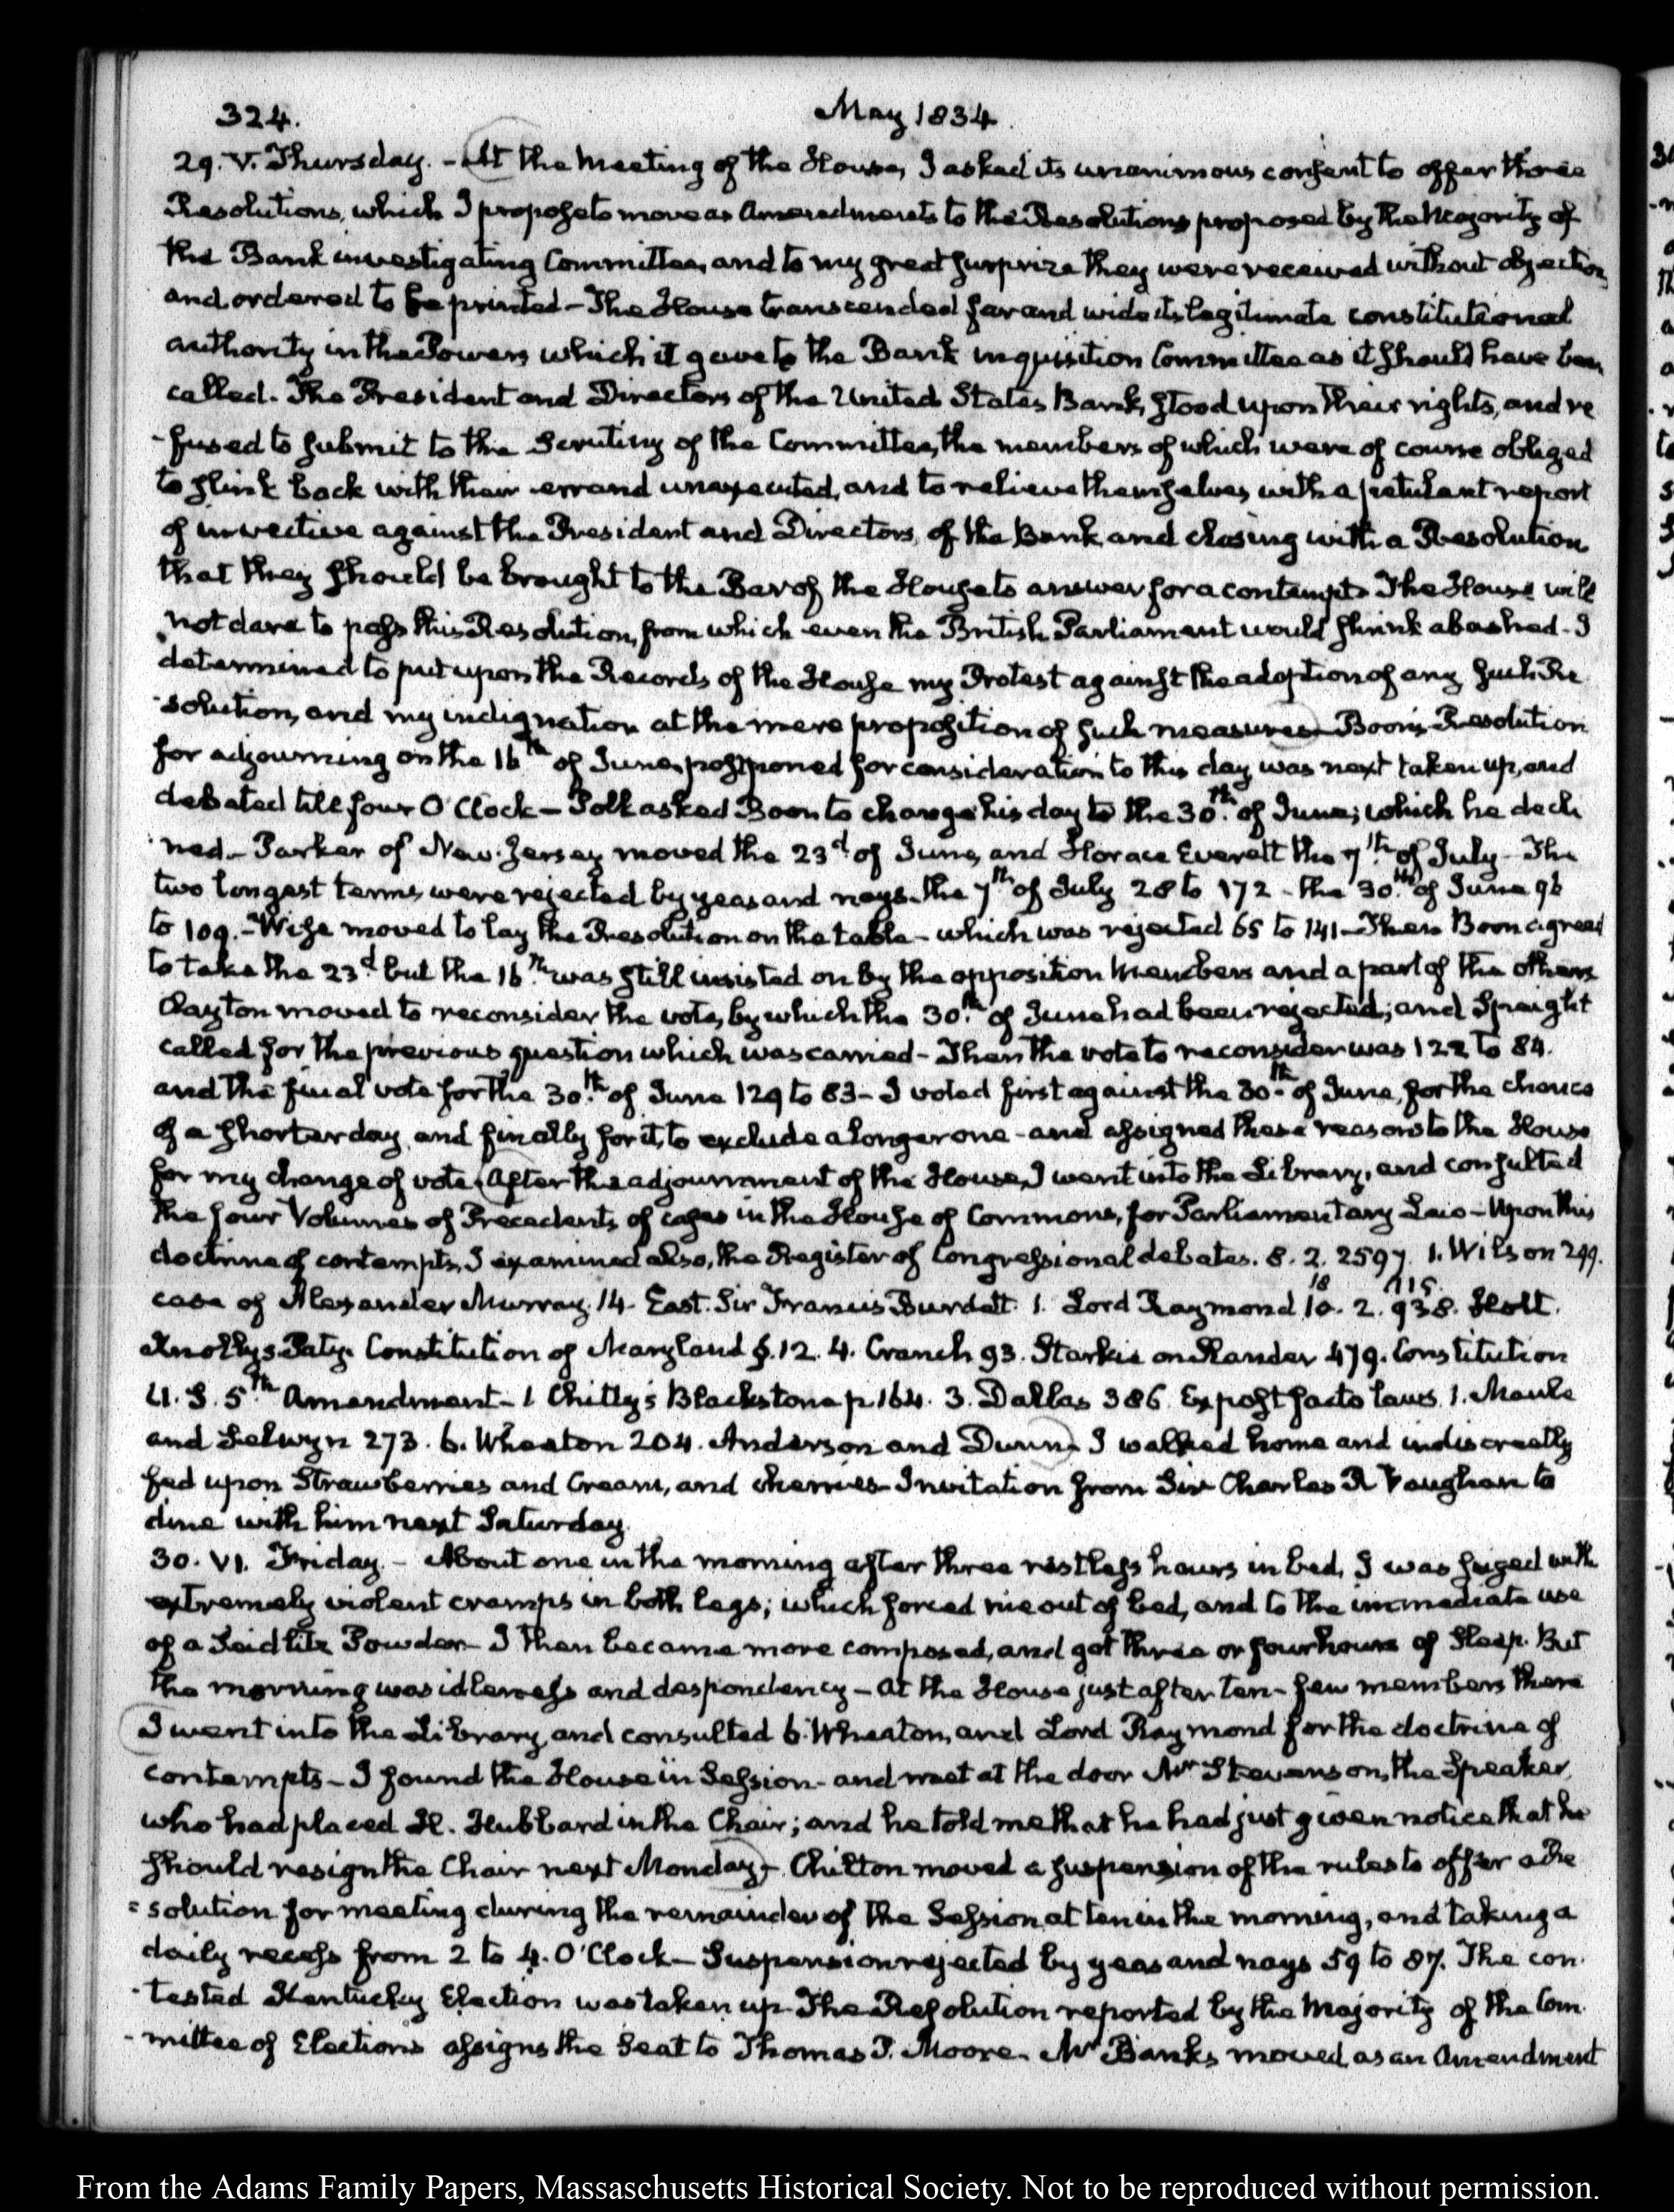 324. May 1834.
29. V. Thursday. - At the Meeting of the House, I asked its unanimous consent to offer three
Resolutions, which I propose to move as Amendments to the Resolutions proposed by the Majority of
the Bank investigating Committee, and to my great surprize they were received without objection
and ordered to be printed - The House transcended far and wide its legitimate constitutional
authority in the Powers which it gave to the Bank inquisition Committee as it should have been
called. The President and Directors of the United States Bank, stood upon their rights, and re
-fused to submit to the Scrutiny of the Committee, the members of which were of course obliged
to slink back with their errand unexecuted, and to relieve themselves with a petulant report
of invective against the President and Directors, of the Bank, and closing with a Resolution
that they should be brought to the Bar of the House to answer for a contempt. The House will
not dare to pass this Resolution, from which even the British Parliament would shrink abashed - I
determined to put upon the Records of the House my Protest against the adoption of any such Re
-solution, and my indignation at the mere proposition of such measures - Boon's Resolution
for adjourning on the 16th of June, postponed for consideration to this day was next taken up, and
debated till four O'Clock - Polk asked Boon to change his day to the 30th of June; which he decli
-ned - Parker of New-Jersey moved the 23d of June, and Horace Everett the 7th of July - The
two longest terms were rejected by yeas and nays. the 7th of July 28 to 172 - the 30th of June 96
to 109. - Wise moved to lay the Resolution on the table - which was rejected 65 to 141 - Then Boon agreed
to take the 23d but the 16th was still insisted on by the opposition Members and a part of the others
Clayton moved to reconsider the vote, by which the 30th of June had been rejected; and Speight
called for the previous question which was carried - Then the vote to reconsider was 122 to 84.
and the final vote for the 30th of June 129 to 83 - I voted first against the 30th of June, for the chance
of a shorter day, and finally for it, to exclude a longer one - and assigned these reasons to the House
for my change of vote. After the adjournment of the House, I went into the Library, and consulted
the four Volumes of Precedents, of cases in the House of Commons, for Parliamentary Law - Upon this
doctrine of contempts, I examined also, the Register of Congressional debates. 8. 2. 2597. 1. Wilson 299.
case of Alexander Murray. 14. East. Sir Francis Burdett. 1. Lord Raymond 10. 18 2. 938. 1115. Holt.
Knollys. Paty. Constitution of Maryland §.12. 4. Cranch 93. Starkie on Slander 479. Constitution
U. S. 5th Amendment - 1 Chitty's Blackstone p 164. 3. Dallas 386. Ex post facto laws. 1. Maule
and Selwyn 273. 6. Wheaton 204. Anderson and Dunn. I walked home and indiscreetly
fed upon Strawberries and Cream, and cherries - Invitation from Sir Charles R Vaughan to
dine with him next Saturday.
30. VI. Friday. - About one in the morning after three restless hours in bed, I was seized with
extremely violent cramps in both legs; which forced me out of bed, and to the immediate use
of a Seidlitz Powder - I then became more composed, and got three or four hours of Sleep. But
the morning was idleness and despondency - At the House just after ten - few members there
I went into the Library, and consulted 6. Wheaton, and Lord Raymond for the doctrine of
contempts - I found the House in Session - and met at the door Mr Stevenson, the Speaker,
who had placed H. Hubbard in the Chair; and he told me that he had just given notice that he
should resign the Chair next Monday - Chilton moved a suspension of the rules to offer a Re
=solution for meeting during the remainder of the Session at ten in the morning, and taking a
daily recess from 2 to 4. O'Clock - Suspension rejected by yeas and nays 59 to 87. The con
-tested Kentucky Election was taken up. The Resolution reported by the Majority of the Com
-mittee of Elections assigns the Seat to Thomas P. Moore. Mr Banks moved as an Amendment
From the Adams Family Papers, Massachusetts Historical Society. Not to be reproduced without permission.